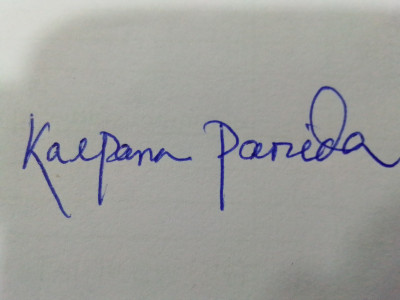 Kalpana Parida